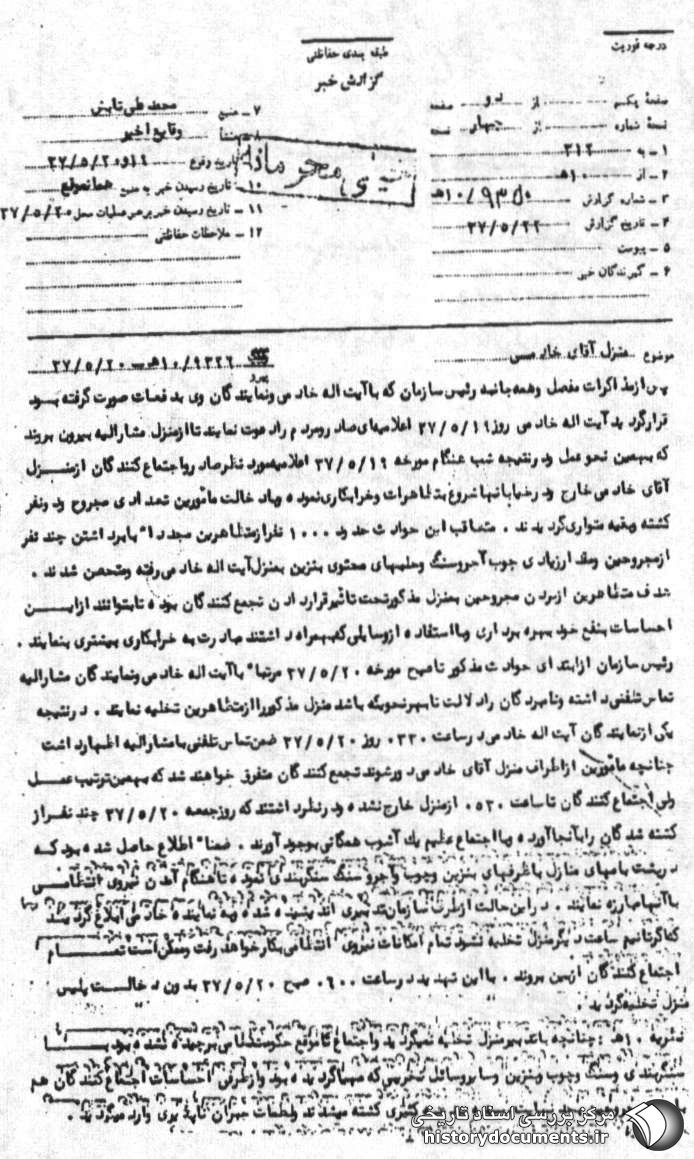 درجه فوریت
طبقه بندی حفاظتی
گزارش خبر
صفحه یکم از دو صفحه
نسخه شماره از چهار نسخه
۱ - به ۳۱۲
۲ - از ۱۰هـ
۳ - شماره گزارش ۱۰/۹۳۵۰هـ
۴ - تاریخ گزارش ۳۷/۵/۲۲
۵ - پیوست
۶ - گیرندگان خبر
۷ - منبع محمد علی تابش
۸ - منشأ وقایع اخیر
تاریخ وقوع ۱۹و۳۷/۵/۲۰
۱۰ - تاریخ رسیدن خبر به منبع همانموقع
۱۱ - تاریخ رسیدن خبر برهبر عملیات محل ۳۷/۵/۲۰
۱۲ - ملاحظات حفاظتی
خیلی محرمانه
موضوع منزل آقای خادمی
پیرو ۱۰/۹۳۲۲هـ - ۳۷/۵/۲۰
پس از مذاکرات مفصل و همه جانبه رئیس سازمان که با آیت اله خادمی و نمایندگان وی بدفعات صورت گرفته بود
قرار گردید آیت اله خادمی روز ۳۷/۵/۱۹ اعلامیه‌ای صادر و مردم را دعوت نمایند تا از منزل مشارالیه بیرون بروند
که بهمین نحو عمل و در نتیجه شب هنگام مورخه ۳۷/۵/۱۹ اعلامیه مورد نظر صادر و اجتماع کنندگان از منزل
آقای خادمی خارج و در خیابانها شروع بتظاهرات و خرابکاری نموده و با دخالت مأمورین تعدادی مجروح و دو نفر
کشته و بقیه متواری گردیدند . متعاقب این حوادث حدود ۱۰۰۰ نفر از متظاهرین مجدداً با برداشتن چند نفر
از مجروحین و مقدار زیادی چوب آجر و سنگ و حلبهای محتوی بنزین بمنزل آیت اله خادمی رفته و متحصن شدند .
هدف متظاهرین از بردن مجروحین بمنزل مذکور تحت تاثیر قرار دادن تجمع کنندگان بوده تا بتوانند از این
احساسات بنفع خود بهره برداری و با استفاده از وسایلی که بهمراه داشتند مبادرت به خرابکاری بیشتری بنمایند .
رئیس سازمان از ابتدای حوادث مذکور تا صبح مورخه ۳۷/۵/۲۰ مرتباً با آیت اله خادمی و نمایندگان مشارالیه
تماس تلفنی داشته و نامبردگان را دلالت تا بهر نحویکه باشد منزل مذکور را از متظاهرین تخلیه نمایند . در نتیجه
یکی از نمایندگان آیت اله خادمی در ساعت ۰۳۳۰ روز ۳۷/۵/۲۰ ضمن تماس تلفنی با مشارالیه اظهار داشت
چنانچه مأمورین از اطراف منزل آقای خادمی دور شوند تجمع کنندگان متفرق خواهند شد که بهمین ترتیب عمل
ولی اجتماع کنندگان تا ساعت ۰۵۳۰ از منزل خارج نشده و در نظر داشتند که روز جمعه ۳۷/۵/۲۰ چند نفر از
کشته شدگان را بآنجا آورده و با اجتماع عظیم یک آشوب همگانی بوجود آورند . ضمناً اطلاع حاصل شده بود که
در پشت بامهای منازل با ظرفهای بنزین و چوب و آجر و سنگ سنگربندی نموده تا هنگام آمدن نیروی انتظامی
با آنها مبارزه نمایند . در این حالت از طرف سازمان تدبیری اندیشیده شده و به نماینده خادمی ابلاغ گردید
که اگر تا نیم ساعت دیگر منزل تخلیه نشود تمام امکانات نیروی انتظامی بکار خواهد رفت و ممکن است تمام
اجتماع کنندگان از بین بروند . با این تهدید در ساعت ۰۶۰۰ صبح ۳۷/۵/۲۰ بدون دخالت پلیس
منزل تخلیه گردید .
نظریه ۱۰هـ : چنانچه با تدبیر منزل تخلیه نمیگردید و اجتماع تا موقع حکومت نظامی برچیده نشده بود با
سنگربندی و سنگ و چوب و بنزین و سایر وسائل تخریبی که مهیا گردیده بود و از طرفی احساسات اجتماع کنندگان هم
کثیری کشته میشدند و لطمات جبران ناپذیری وارد میگردید .
مرکز بررسی اسناد تاریخی
historydocuments.ir